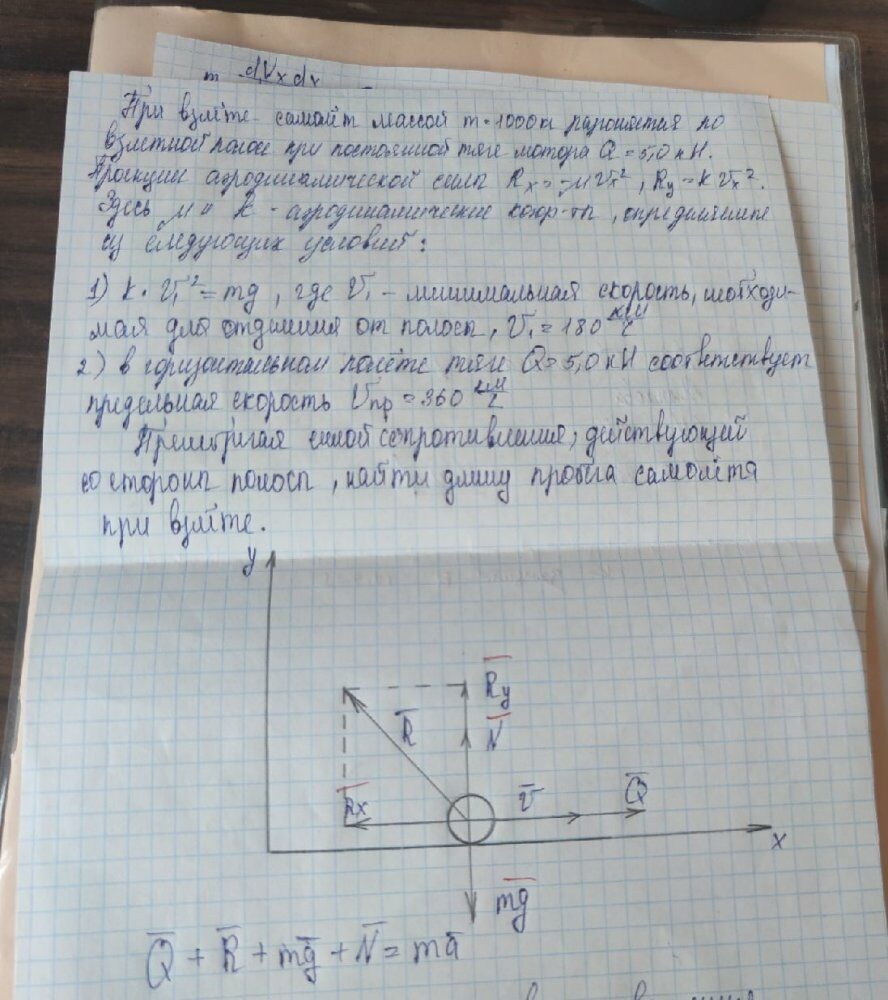 m dVx dx
При взлёте самолёт массой m = 1000 кг разгоняется по
взлетной полосе при постоянной тяге мотора Q = 5,0 кН.
Проекции аэродинамической силы Rx = -μVx², Ry = kVx².
Здесь μ и k - аэродинамические коэф-ты, определяемые
из следующих условий:
1) k · V₁² = mg, где V₁ - минимальная скорость, необходи-
мая для отделения от полосы, V₁ = 180 км/ч
2) в горизонтальном полёте тяге Q = 5,0 кН соответствует
предельная скорость Vпр = 360 км/ч
Пренебрегая силой сопротивления, действующей
со стороны полосы, найти длину пробега самолёта
при взлёте.
y
Ry
R
N
Rx
v
Q
x
mg
Q + R + mg + N = ma